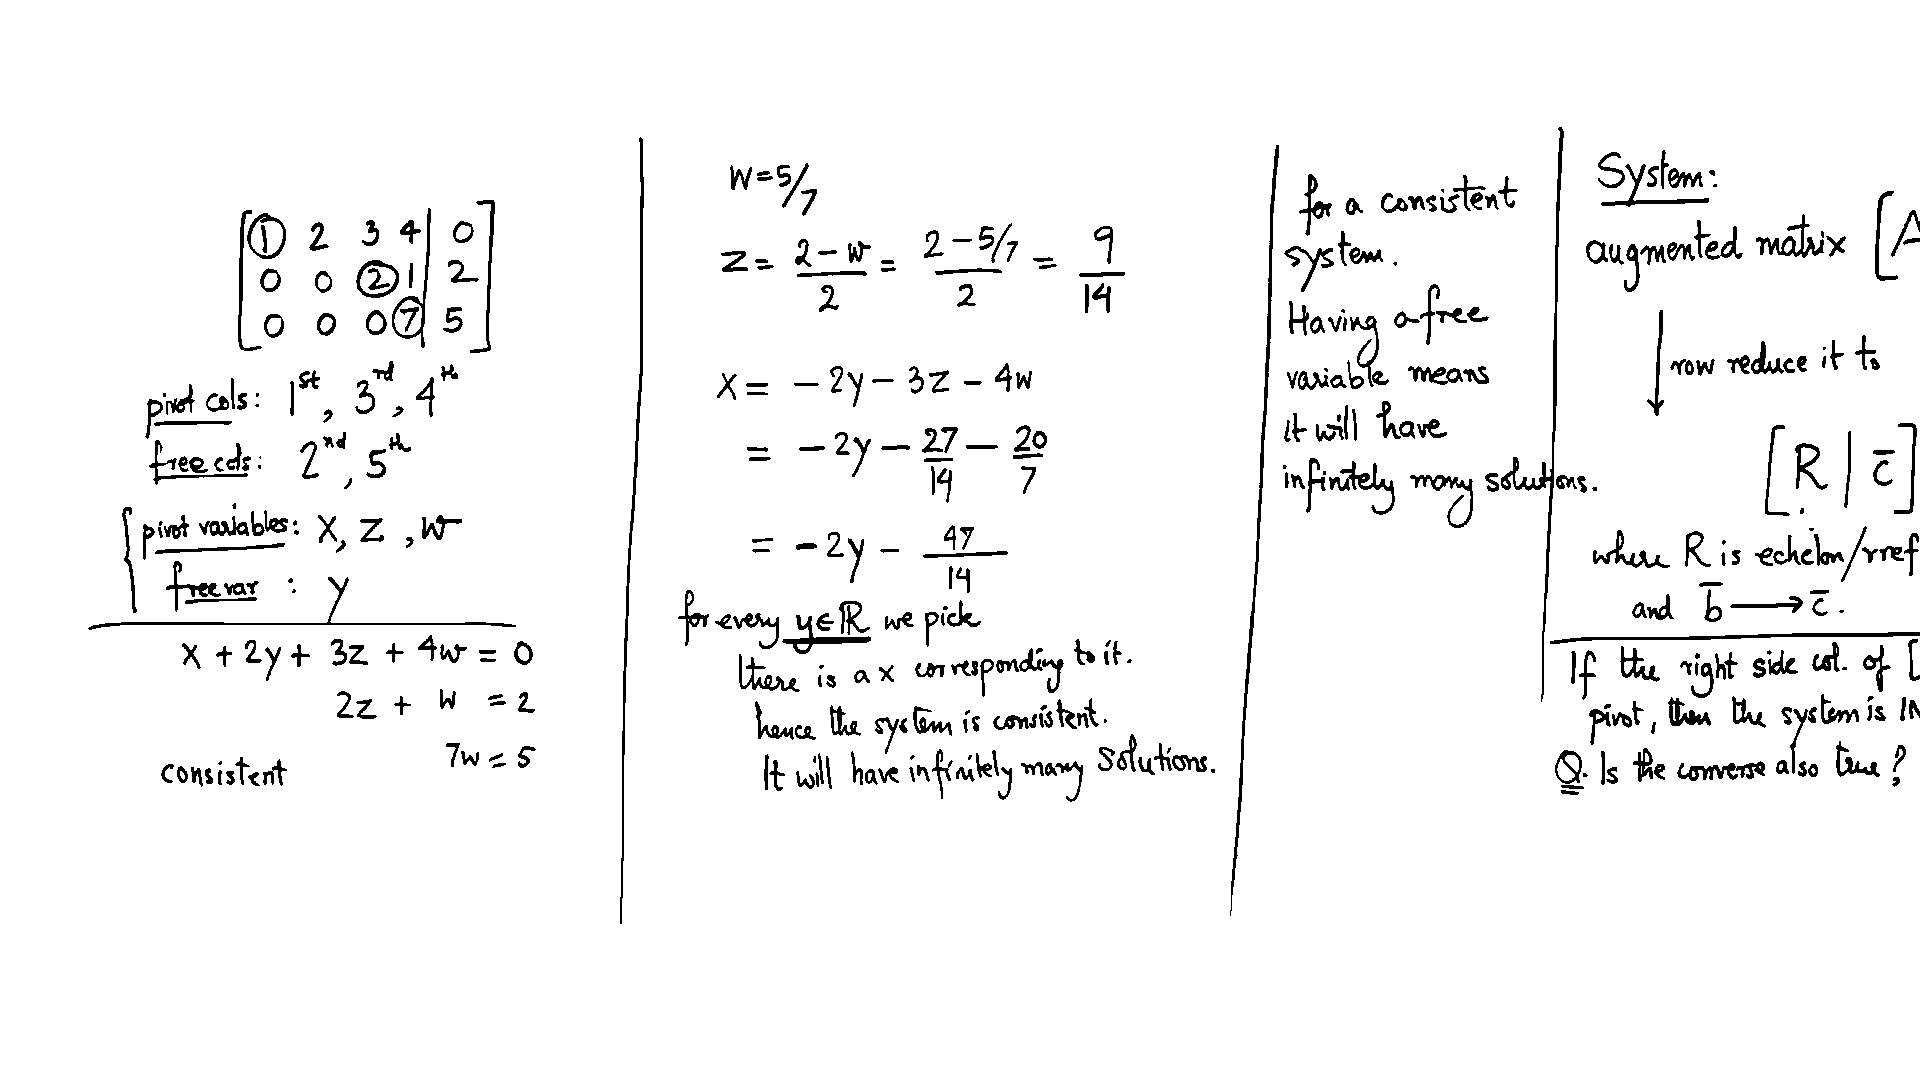 [1 2 3 4 | 0]
[0 0 2 1 | 2]
[0 0 0 7 | 5]
pivot cols: 1st, 3rd, 4th
free cols: 2nd, 5th
pivot variables: x, z, w
free var : y
x + 2y + 3z + 4w = 0
2z + w = 2
7w = 5
consistent
w = 5/7
z = (2 - w)/2 = (2 - 5/7)/2 = 9/14
x = - 2y - 3z - 4w
= - 2y - 27/14 - 20/7
= - 2y - 47/14
for every y ∈ ℝ we pick
there is a x corresponding to it.
hence the system is consistent.
It will have infinitely many solutions.
for a consistent
system.
Having a free
variable means
it will have
infinitely many solutions.
System:
augmented matrix [A
↓ row reduce it to
[R | c̄]
where R is echelon/rref
and b̄ → c̄.
If the right side col. of [
pivot, then the system is IN
Q. Is the converse also true?